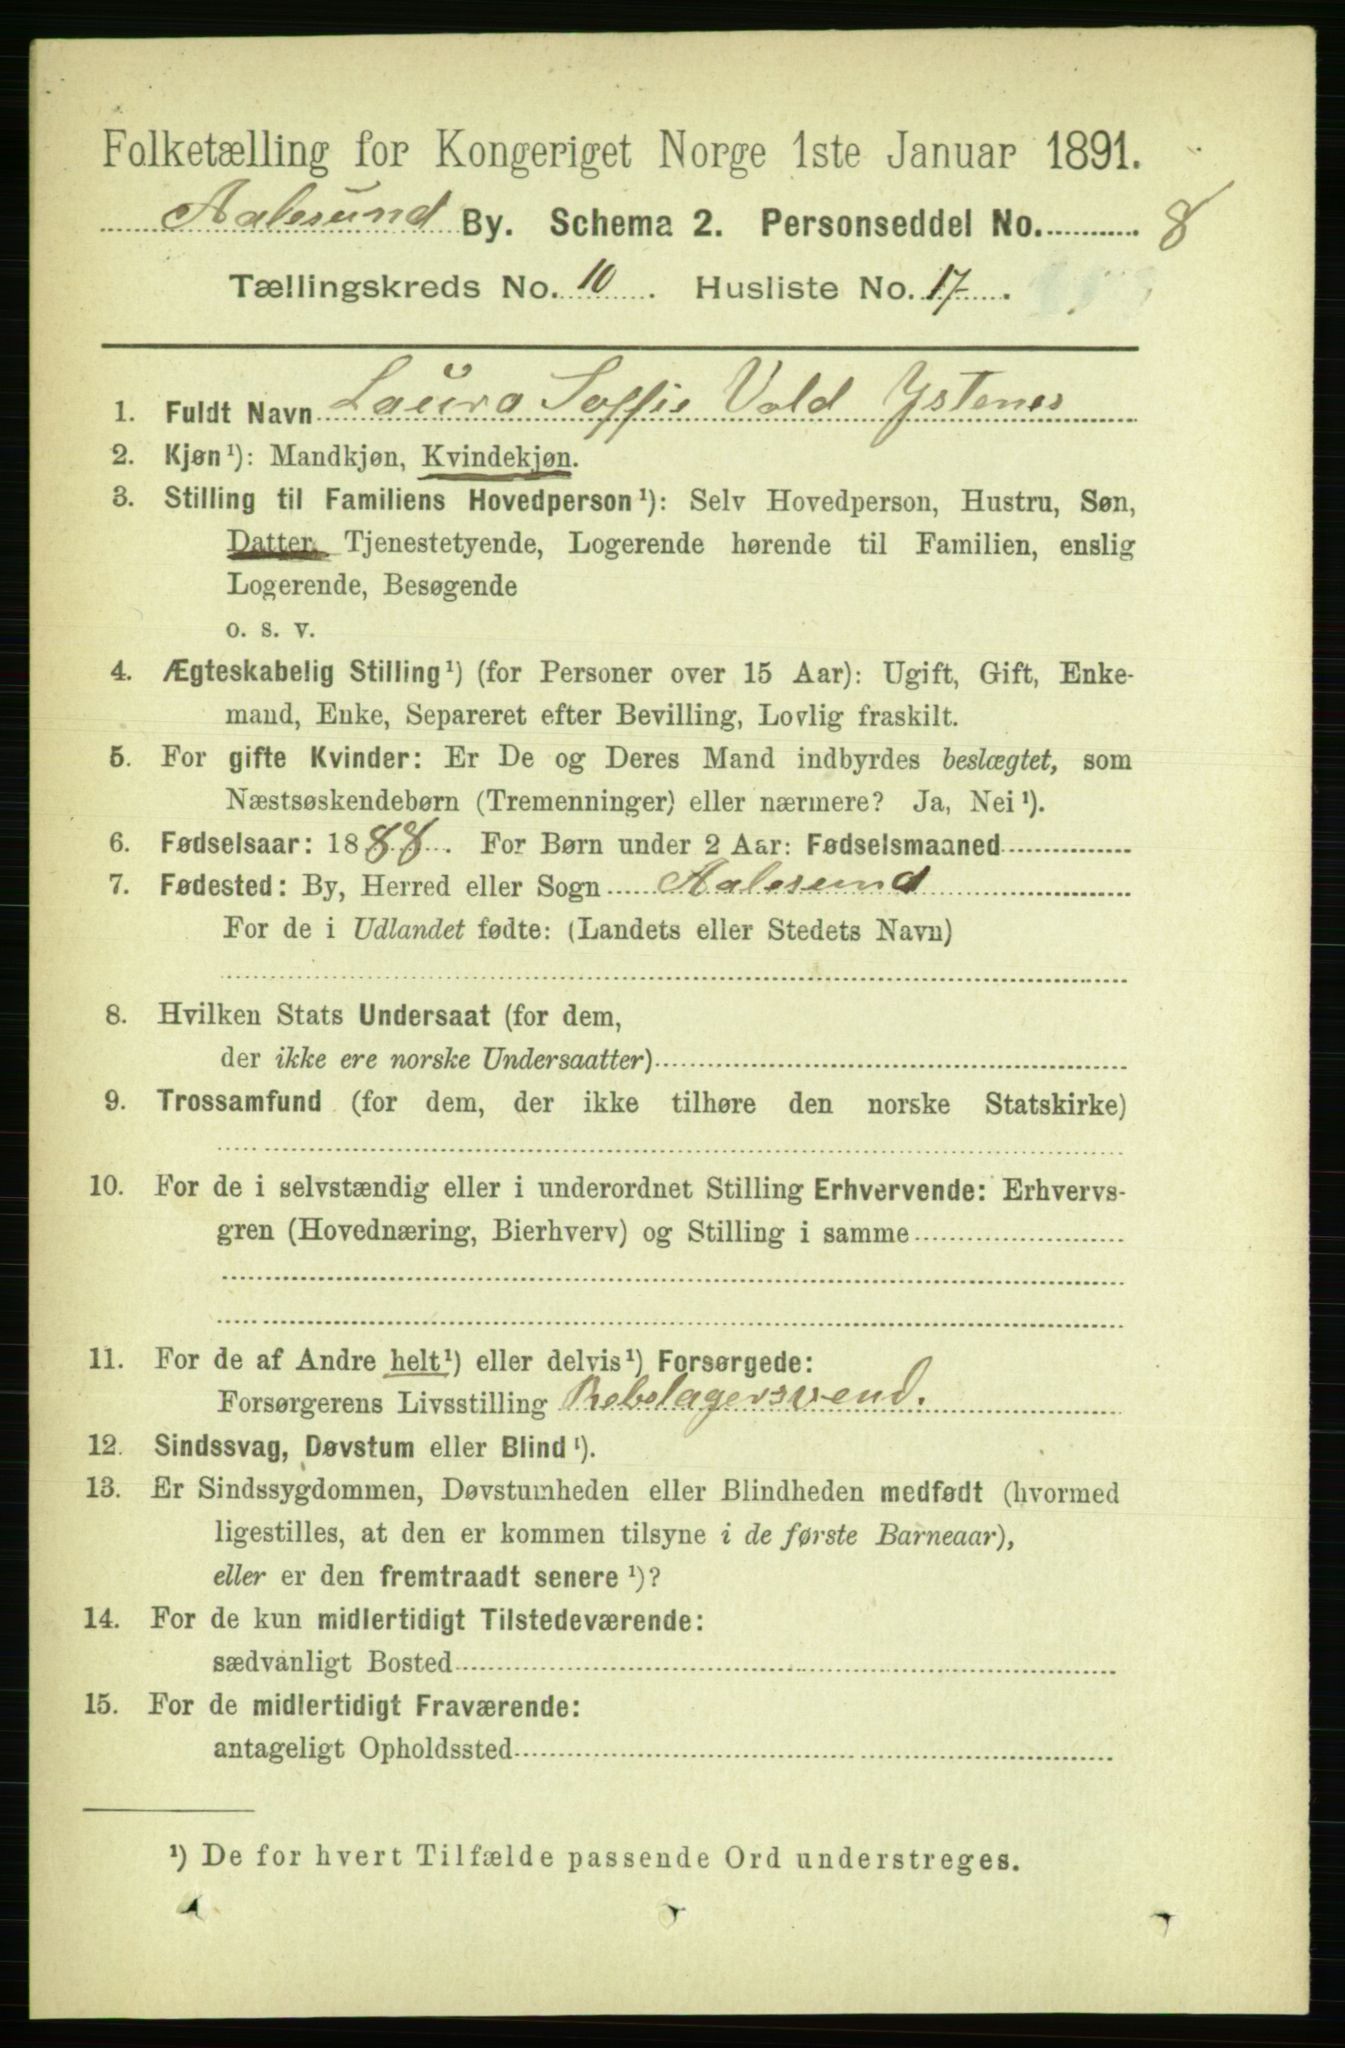 Folketælling for Kongeriget Norge 1ste Januar 1891.
Aalesund By. Schema 2. Personseddel No. 8
Tællingskreds No. 10. Husliste No. 17.
1. Fuldt Navn Laura Soffie Vold Ystenes
2. Kjøn¹): Mandkjøn, Kvindekjøn.
3. Stilling til Familiens Hovedperson¹): Selv Hovedperson, Hustru, Søn,
Datter, Tjenestetyende, Logerende hørende til Familien, enslig
Logerende, Besøgende
o. s. v.
4. Ægteskabelig Stilling¹) (for Personer over 15 Aar): Ugift, Gift, Enke-
mand, Enke, Separeret efter Bevilling, Lovlig fraskilt.
5. For gifte Kvinder: Er De og Deres Mand indbyrdes beslægtet, som
Næstsøskendebørn (Tremenninger) eller nærmere? Ja, Nei¹).
6. Fødselsaar: 1888. For Børn under 2 Aar: Fødselsmaaned
7. Fødested: By, Herred eller Sogn Aalesund
For de i Udlandet fødte: (Landets eller Stedets Navn)
8. Hvilken Stats Undersaat (for dem,
der ikke ere norske Undersaatter)
9. Trossamfund (for dem, der ikke tilhøre den norske Statskirke)
10. For de i selvstændig eller i underordnet Stilling Erhvervende: Erhvervs-
gren (Hovednæring, Bierhverv) og Stilling i samme
11. For de af Andre helt¹) eller delvis¹) Forsørgede:
Forsørgerens Livsstilling Rebslagersvend.
12. Sindssvag, Døvstum eller Blind¹).
13. Er Sindssygdommen, Døvstumheden eller Blindheden medfødt (hvormed
ligestilles, at den er kommen tilsyne i de første Barneaar),
eller er den fremtraadt senere¹)?
14. For de kun midlertidigt Tilstedeværende:
sædvanligt Bosted
15. For de midlertidigt Fraværende:
antageligt Opholdssted
¹) De for hvert Tilfælde passende Ord understreges.